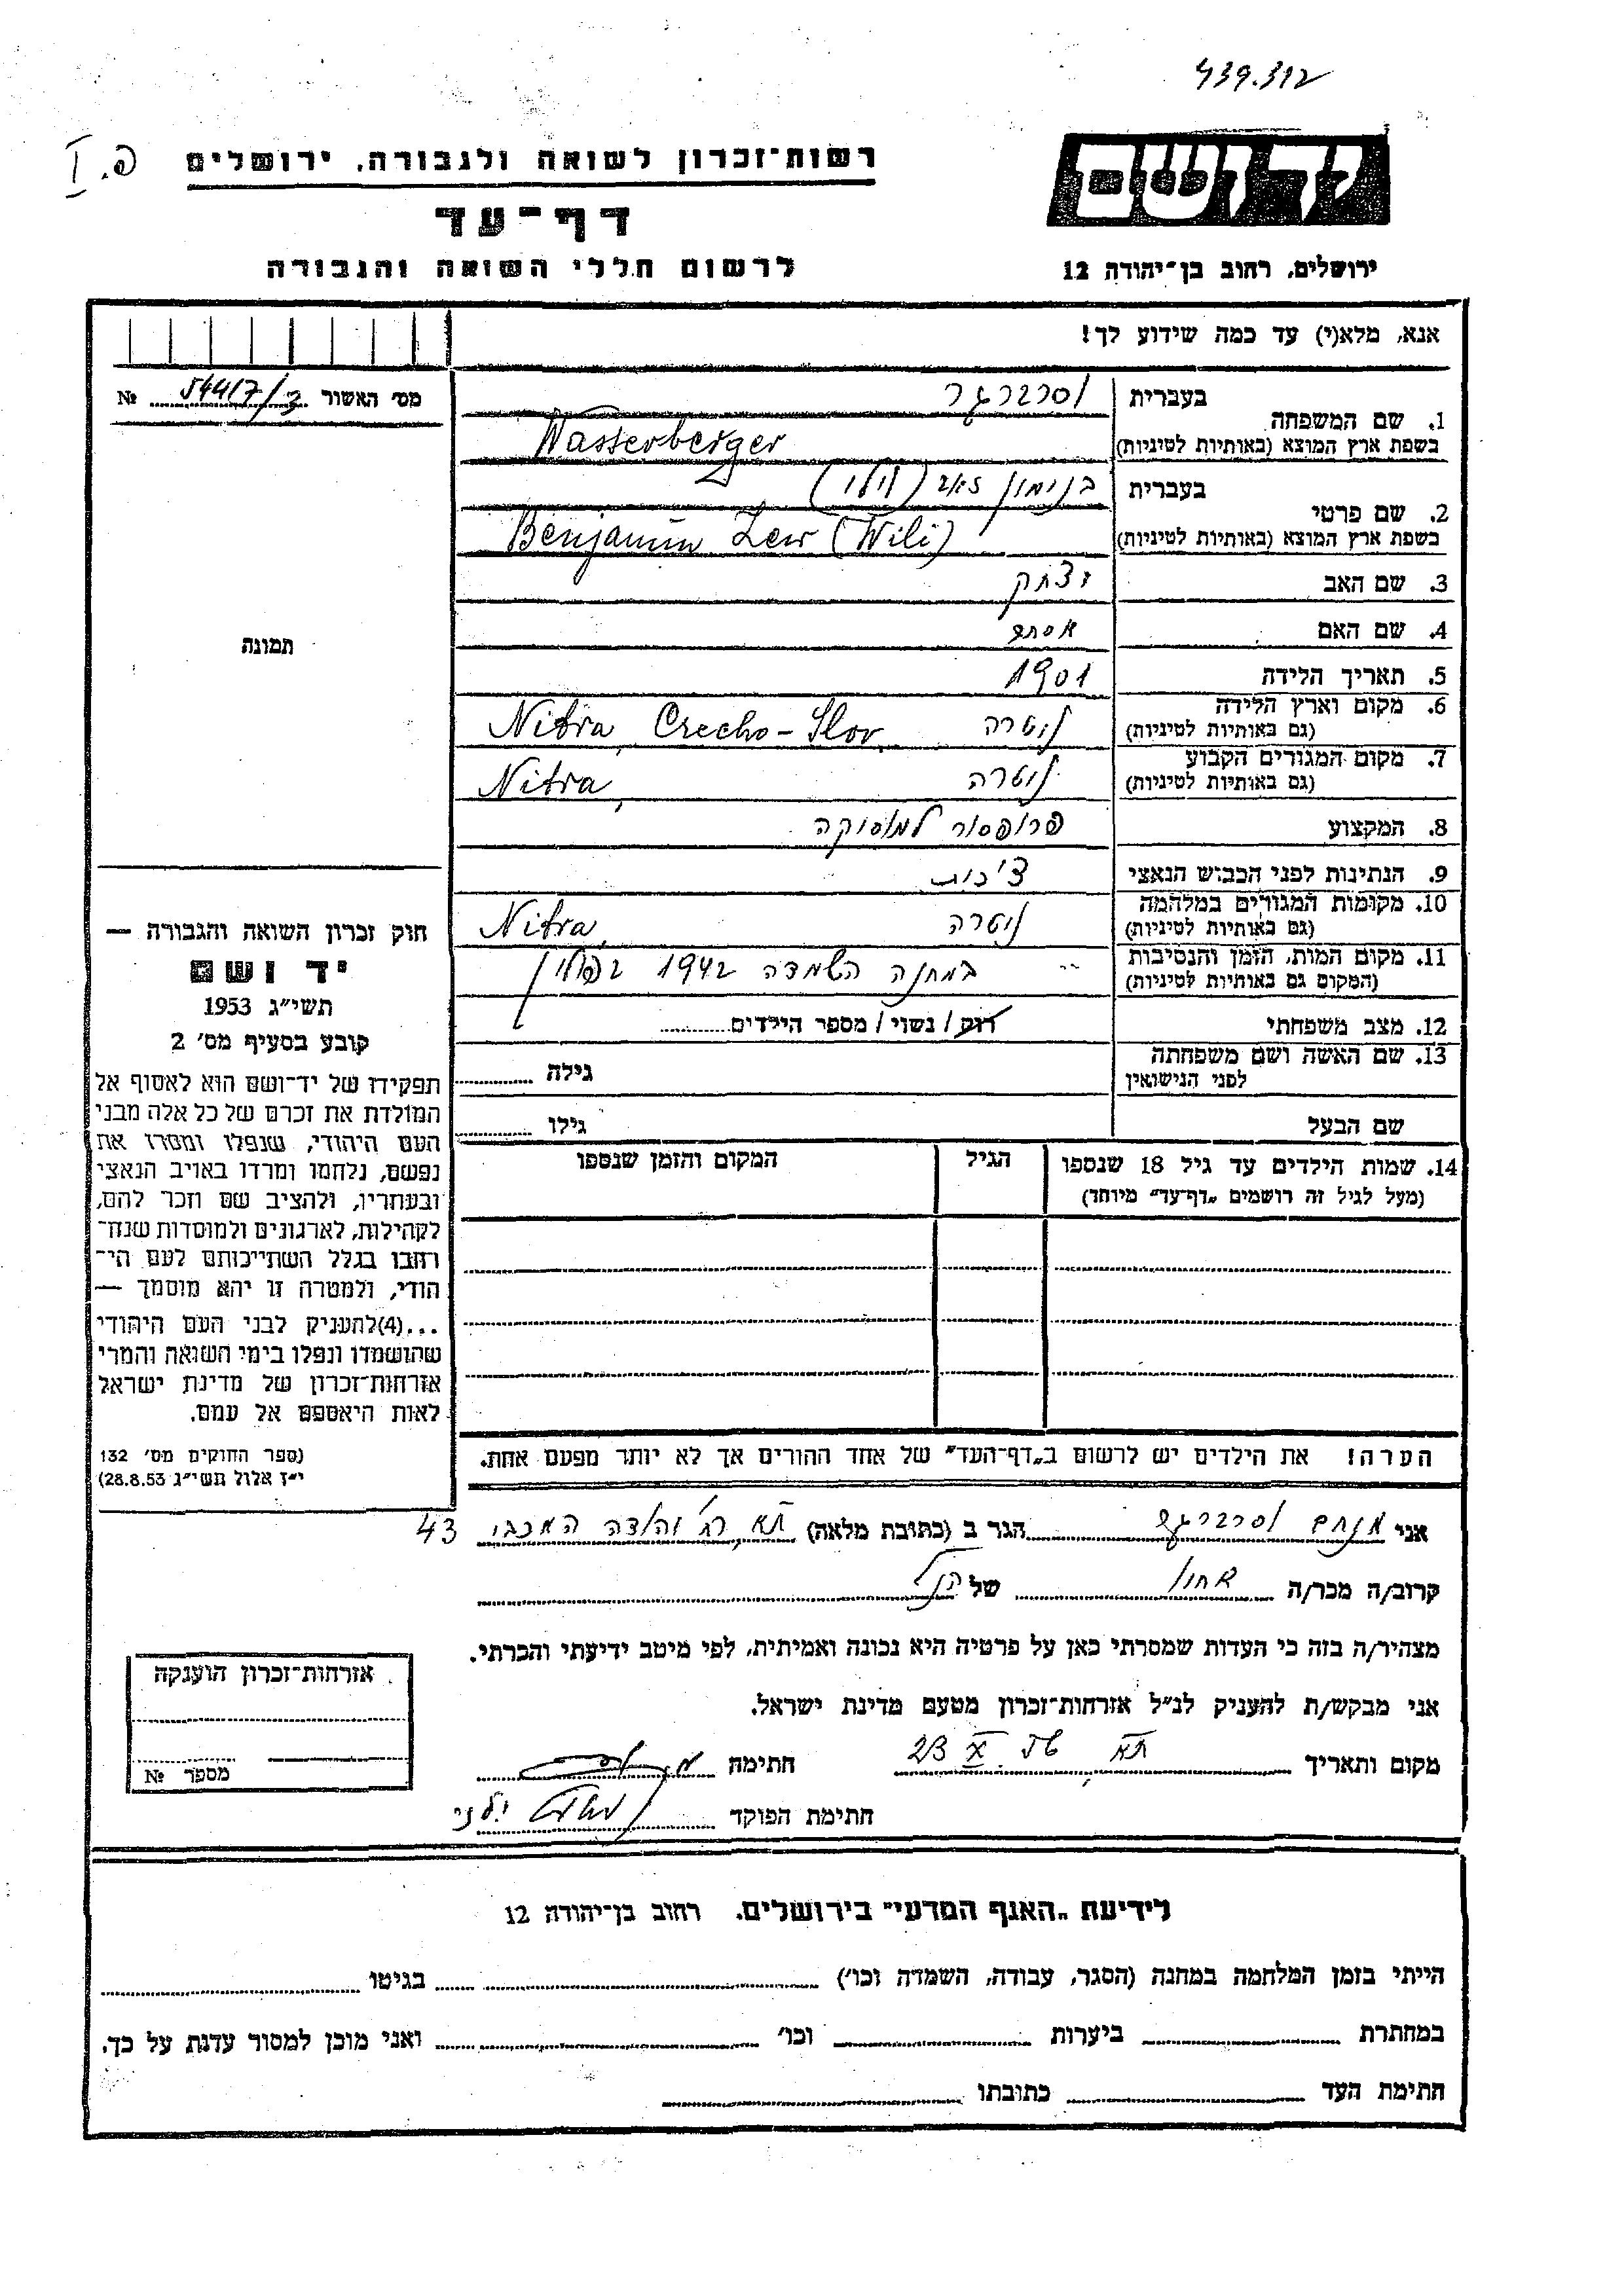 439.312
פ. I
רשות־זכרון לשואה ולגבורה, ירושלים
יד ושם
דף־עד
לרשום חללי השואה והגבורה
ירושלים, רחוב בן־יהודה 12
אנא, מלא(י) עד כמה שידוע לך!
מס׳ האשור 54417/3 №
1. שם המשפחה
בעברית וסרברגר
בשפת ארץ המוצא (באותיות לטיניות) Wasserberger
2. שם פרטי
בעברית בנימין זאב (וילי)
בשפת ארץ המוצא (באותיות לטיניות) Benjamin Zew (Wili)
3. שם האב יצחק
4. שם האם אסתר
5. תאריך הלידה 1901
6. מקום וארץ הלידה
(גם באותיות לטיניות) ניטרה Nitra, Czecho-Slov.
7. מקום המגורים הקבוע
(גם באותיות לטיניות) ניטרה Nitra,
8. המקצוע פרופסור למוסיקה
9. הנתינות לפני הכבוש הנאצי צ׳כית
10. מקומות המגורים במלחמה
(גם באותיות לטיניות) ניטרה Nitra,
11. מקום המות, הזמן והנסיבות
(המקום גם באותיות לטיניות) במחנה השמדה 1942 בפולין
12. מצב משפחתי רווק / נשוי / מספר הילדים
13. שם האשה ושם משפחתה
לפני הנישואין גילה
שם הבעל גילו
14. שמות הילדים עד גיל 18 שנספו הגיל המקום והזמן שנספו
(מעל לגיל זה רושמים „דף־עד״ מיוחד)
הערה! את הילדים יש לרשום ב„דף־העד״ של אחד ההורים אך לא יותר מפעם אחת.
תמונה
חוק זכרון השואה והגבורה —
יד ושם
תשי״ג 1953
קובע בסעיף מס׳ 2
תפקידו של יד־ושם הוא לאסוף אל
המולדת את זכרם של כל אלה מבני
העם היהודי, שנפלו ומסרו את
נפשם, נלחמו ומרדו באויב הנאצי
ובעוזריו, ולהציב שם וזכר להם,
לקהילות, לארגונים ולמוסדות שנח־
רבו בגלל השתייכותם לעם הי־
הודי, ולמטרה זו יהא מוסמך —
...(4)להעניק לבני העם היהודי
שהושמדו ונפלו בימי השואה והמרי
אזרחות־זכרון של מדינת ישראל
לאות היאספם אל עמם.
(ספר החוקים מס׳ 132
י״ז אלול תשי״ג 28.8.53)
אני מנחם וסרברגר הגר ב (כתובת מלאה) תא, רח׳ יהודה המכבי 43
קרוב/ה מכר/ה אחיו של הנ״ל
מצהיר/ה בזה כי העדות שמסרתי כאן על פרטיה היא נכונה ואמיתית, לפי מיטב ידיעתי והכרתי.
אני מבקש/ת להעניק לנ״ל אזרחות־זכרון מטעם מדינת ישראל.
מקום ותאריך תא X 23 חתימה
חתימת הפוקד
אזרחות־זכרון הוענקה
מספר №
לידיעת „האגף המדעי״ בירושלים. רחוב בן־יהודה 12
הייתי בזמן המלחמה במחנה (הסגר, עבודה, השמדה וכו׳) בגיטו
במחתרת ביערות וכו׳ ואני מוכן למסור עדות על כך.
חתימת העד כתובתו